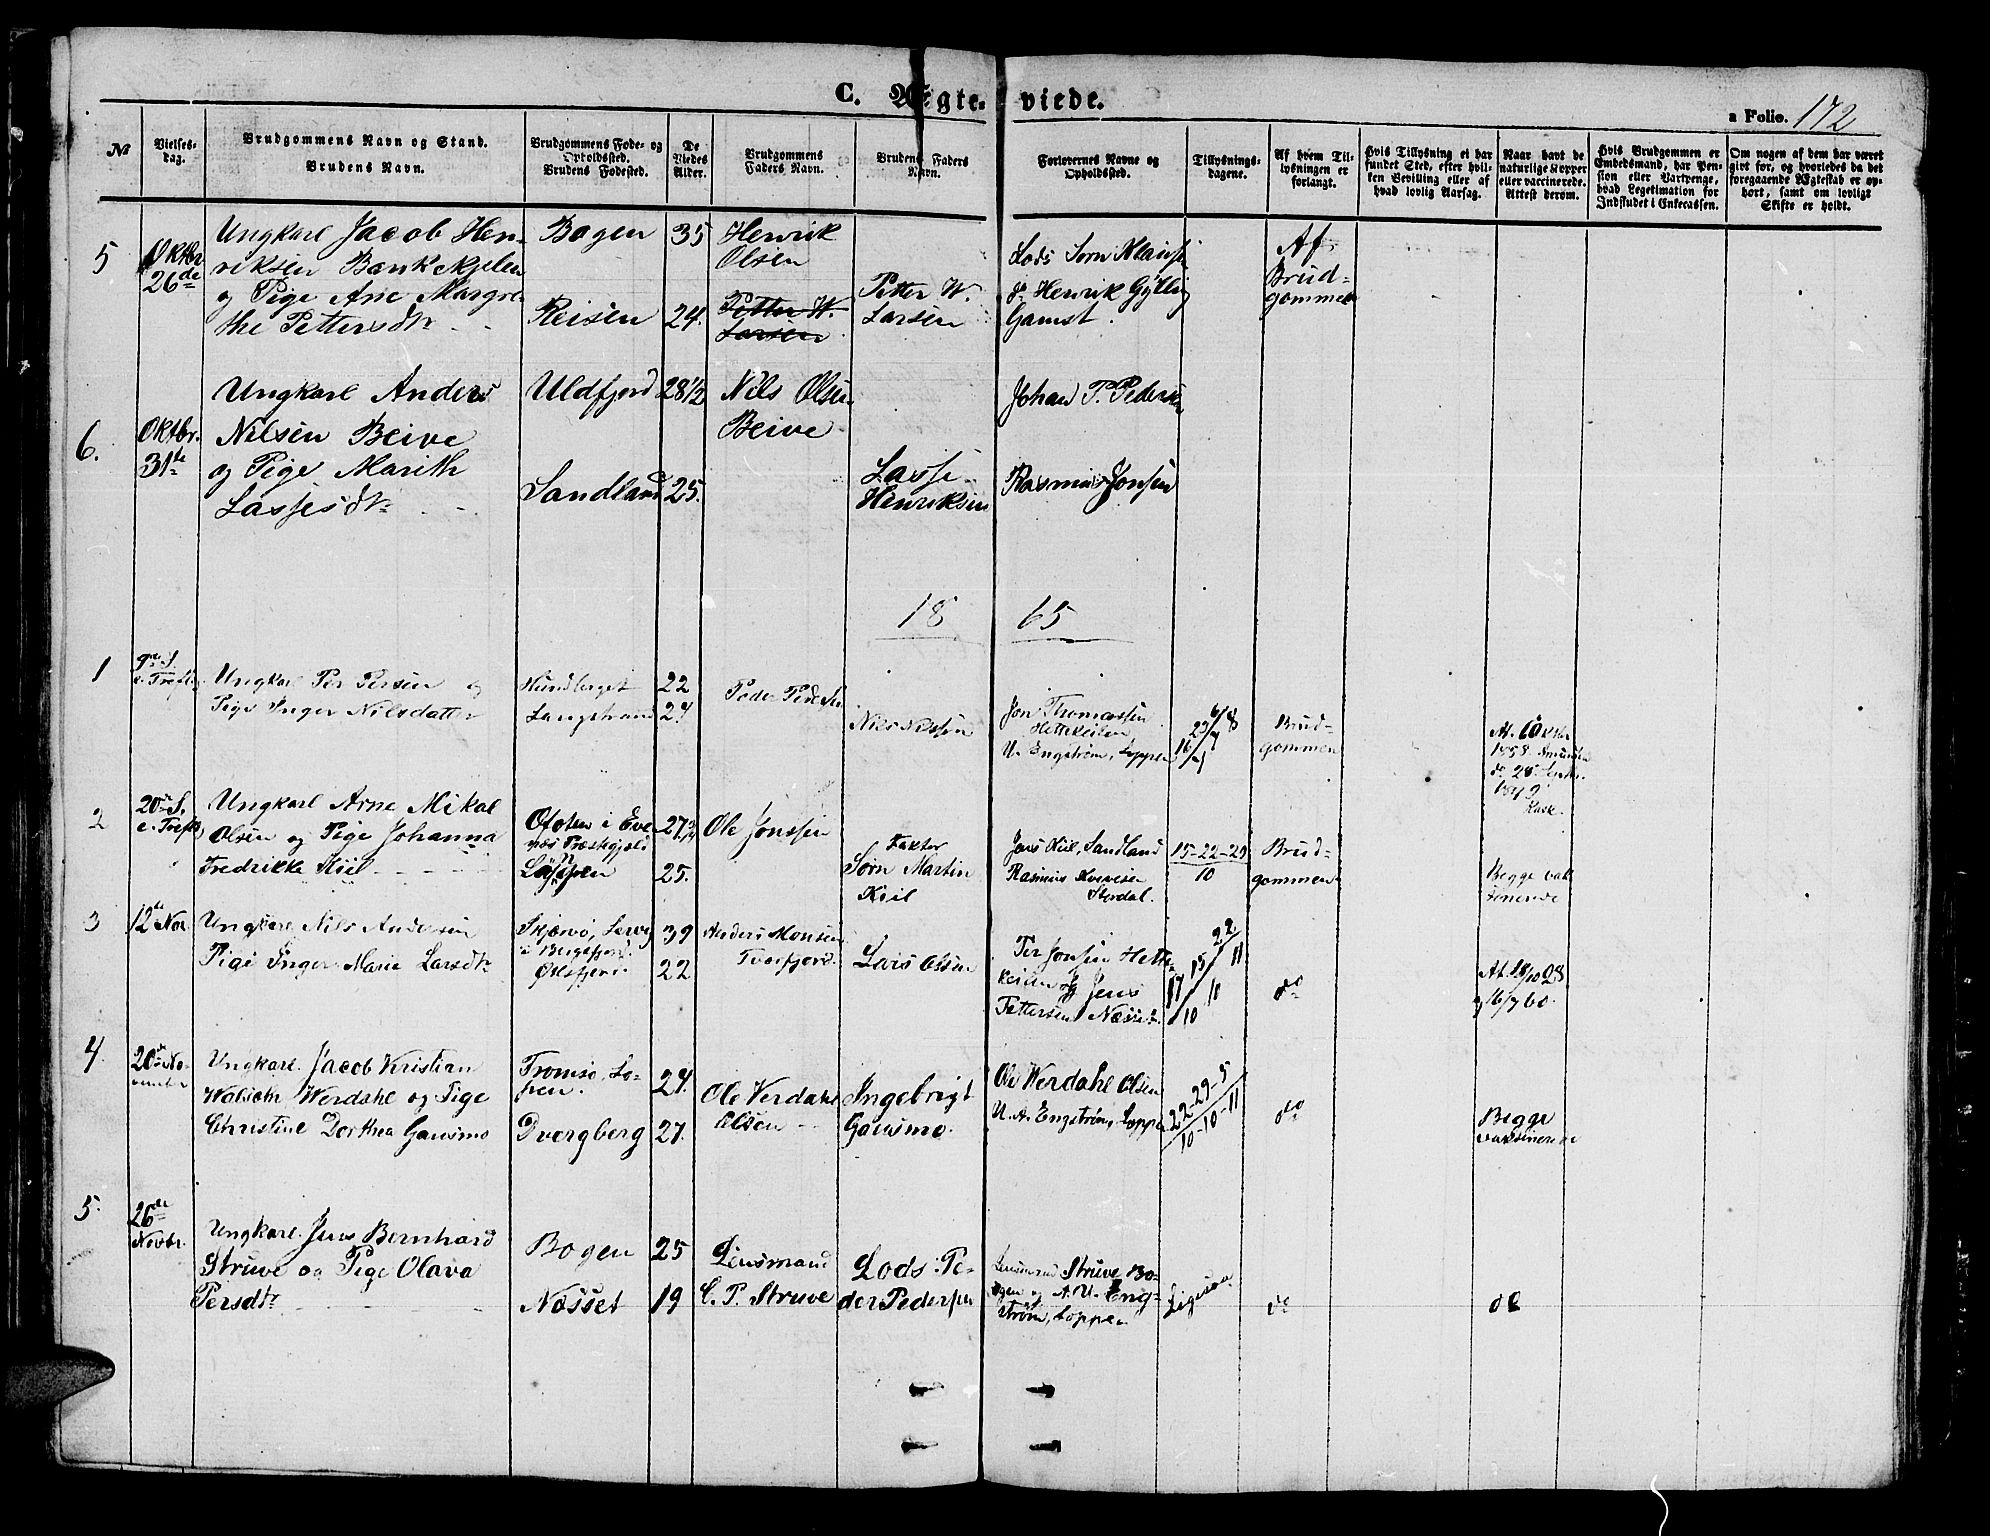 C. Ægteviede.
a Folio. 172
No
Vielsesdag.
Brudgommens Navn og Stand.
Brudens Navn.
Brudgommens Føde- og
Opholdssted.
Brudens Fødested.
De
Viedes
Alder.
Brudgommens
Faders Navn.
Brudens Faders
Navn.
Forlovernes Navne og
Opholdssted.
Tillysnings-
dagene.
Af hvem Til-
lysningen er
forlangt.
Hvis Tillysning ei har
fundet Sted, efter hvil-
ken Bevilling eller af
hvad lovlig Aarsag.
Naar havt de
naturlige Kopper
eller vaccinerede.
Attest derom.
Hvis Brudgommen er
Embedsmand, har Pen-
sion eller Vartpenge,
hvad Legitimation for
Indskudet i Enkecassen.
Om nogen af dem har været
gift før, og hvorledes da det
foregaaende Ægteskab er op-
hørt, samt om lovligt
Skifte er holdt.
5
Oktbr
26de
Ungkarl Jacob Hen-
riksen Bankekjelen
og Pige Ane Margre-
the Pettersdtr
Bogen
Reisen
35
24.
Henrik
Olsen
Petter W.
Larsen
Petter W.
Larsen
Lods Sørn Klausen
do Henrik Gyllig
Gamst.
Af
Brud-
gommen
6.
Oktbr.
31te
Ungkarl Anders
Nilsen Beive
og Pige Marith
Lassesdtr
Uldfjord
Sandland
28 1/2
25.
Nils Olsen
Beive
Lasse
Henriksen
Johan P. Pedersen
Rasmus Jonsen
18 65
1
9de S.
e. Trefb.
Ungkarl Per Persen og
Pige Inger Nilsdatter
Hundberget
Langstrand
22
24
Peder Peders.
Nils Nilssen
Jon Thomassen
Hettekeilen
U. Engstrøm, Loppen
16/7 23/7 6/8
Brud-
gommen
At. 6 Oktbr
1858
do 28 Septbr.
1849
2
20de S.
e. Trefb.
Ungkarl Arne Mikal
Olsen og Pige Johanna
Fredrikke Kiil
Ofoten i Eve-
næs Præstegjeld
Loppen
27 3/4
25.
Ole Jonssen
Faktor
Sørn Martin
Kiil
Jens Kiil, Sandland
Rasmus
Stordal.
15-22-29
10
Brud-
gommen
Begge vak-
sinerede
3
12te Nov
Ungkarl Nils Andersen
Pige Inger Marie Larsdtr
Skjervø,
i Bergsfjord.
Øksfjord.
39
22
Anders Monsen
Tverfjord.
Lars Olsen
Per Jonsen Hette-
keilen og Jens
Pettersen Næsset.
15 22
10 11
do
At. 18/10 28
og 16/7 60.
4.
20de No-
vember
Ungkarl. Jacob Kristian
Walsøhr Werdahl og Pige
Christine Dorthea Gausmo
Tromsø, Lo-
pen.
Dvergberg
24.
27.
Ole Verdahl
Olsen
Ingebrigt
Gausmo.
Ole Werdahl Olsen
U. A. Engstrøm, Loppen
22-29-5
10-10-11
do
Begge
vaksinerede
5.
26de
Novbr.
Ungkarl. Jens Bernhard
Struve og Pige Olava
Persdtr.
Bogen
Næsset
25
19
Lensmand
C. P. Struve
Lods Pe-
der Pedersen
Lensmand Struve Bo-
gen og A. U. Eng-
strøm, Loppen
Ligesaa
do
do